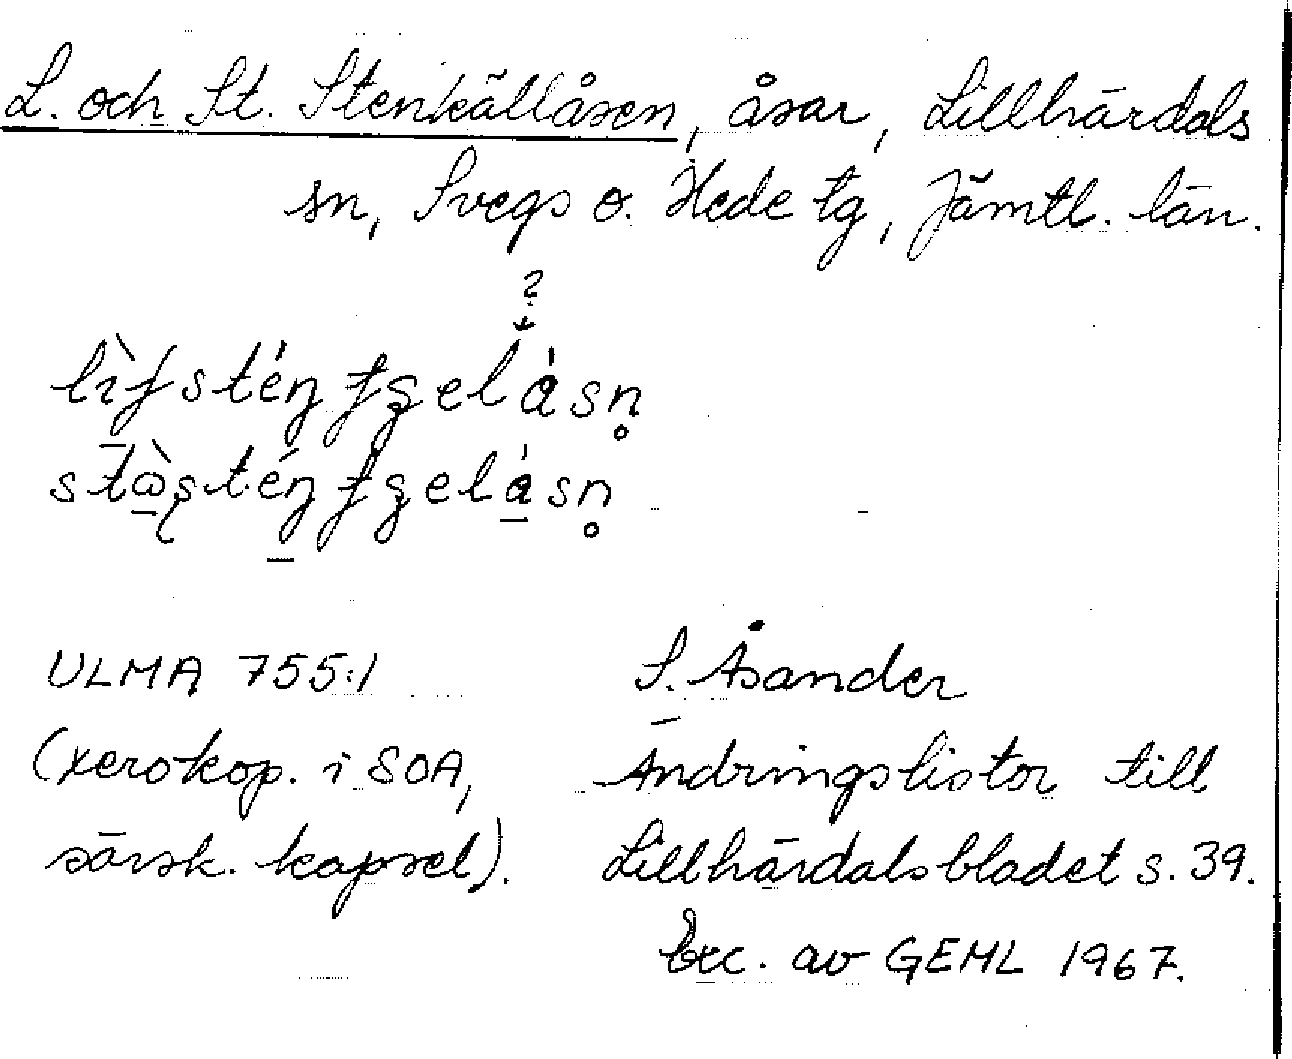 L. och St. Stenkällåsen, åsar, Lillhärdals
sn, Svegs o. Hede tg, Jämtl. län.
?
ULMA 755:1
S. Åsander
(xerokop. i SOA,
Ändringslistor till
särsk. kapsel).
Lillhärdalsbladet s. 39.
Exc. av GEML 1967.